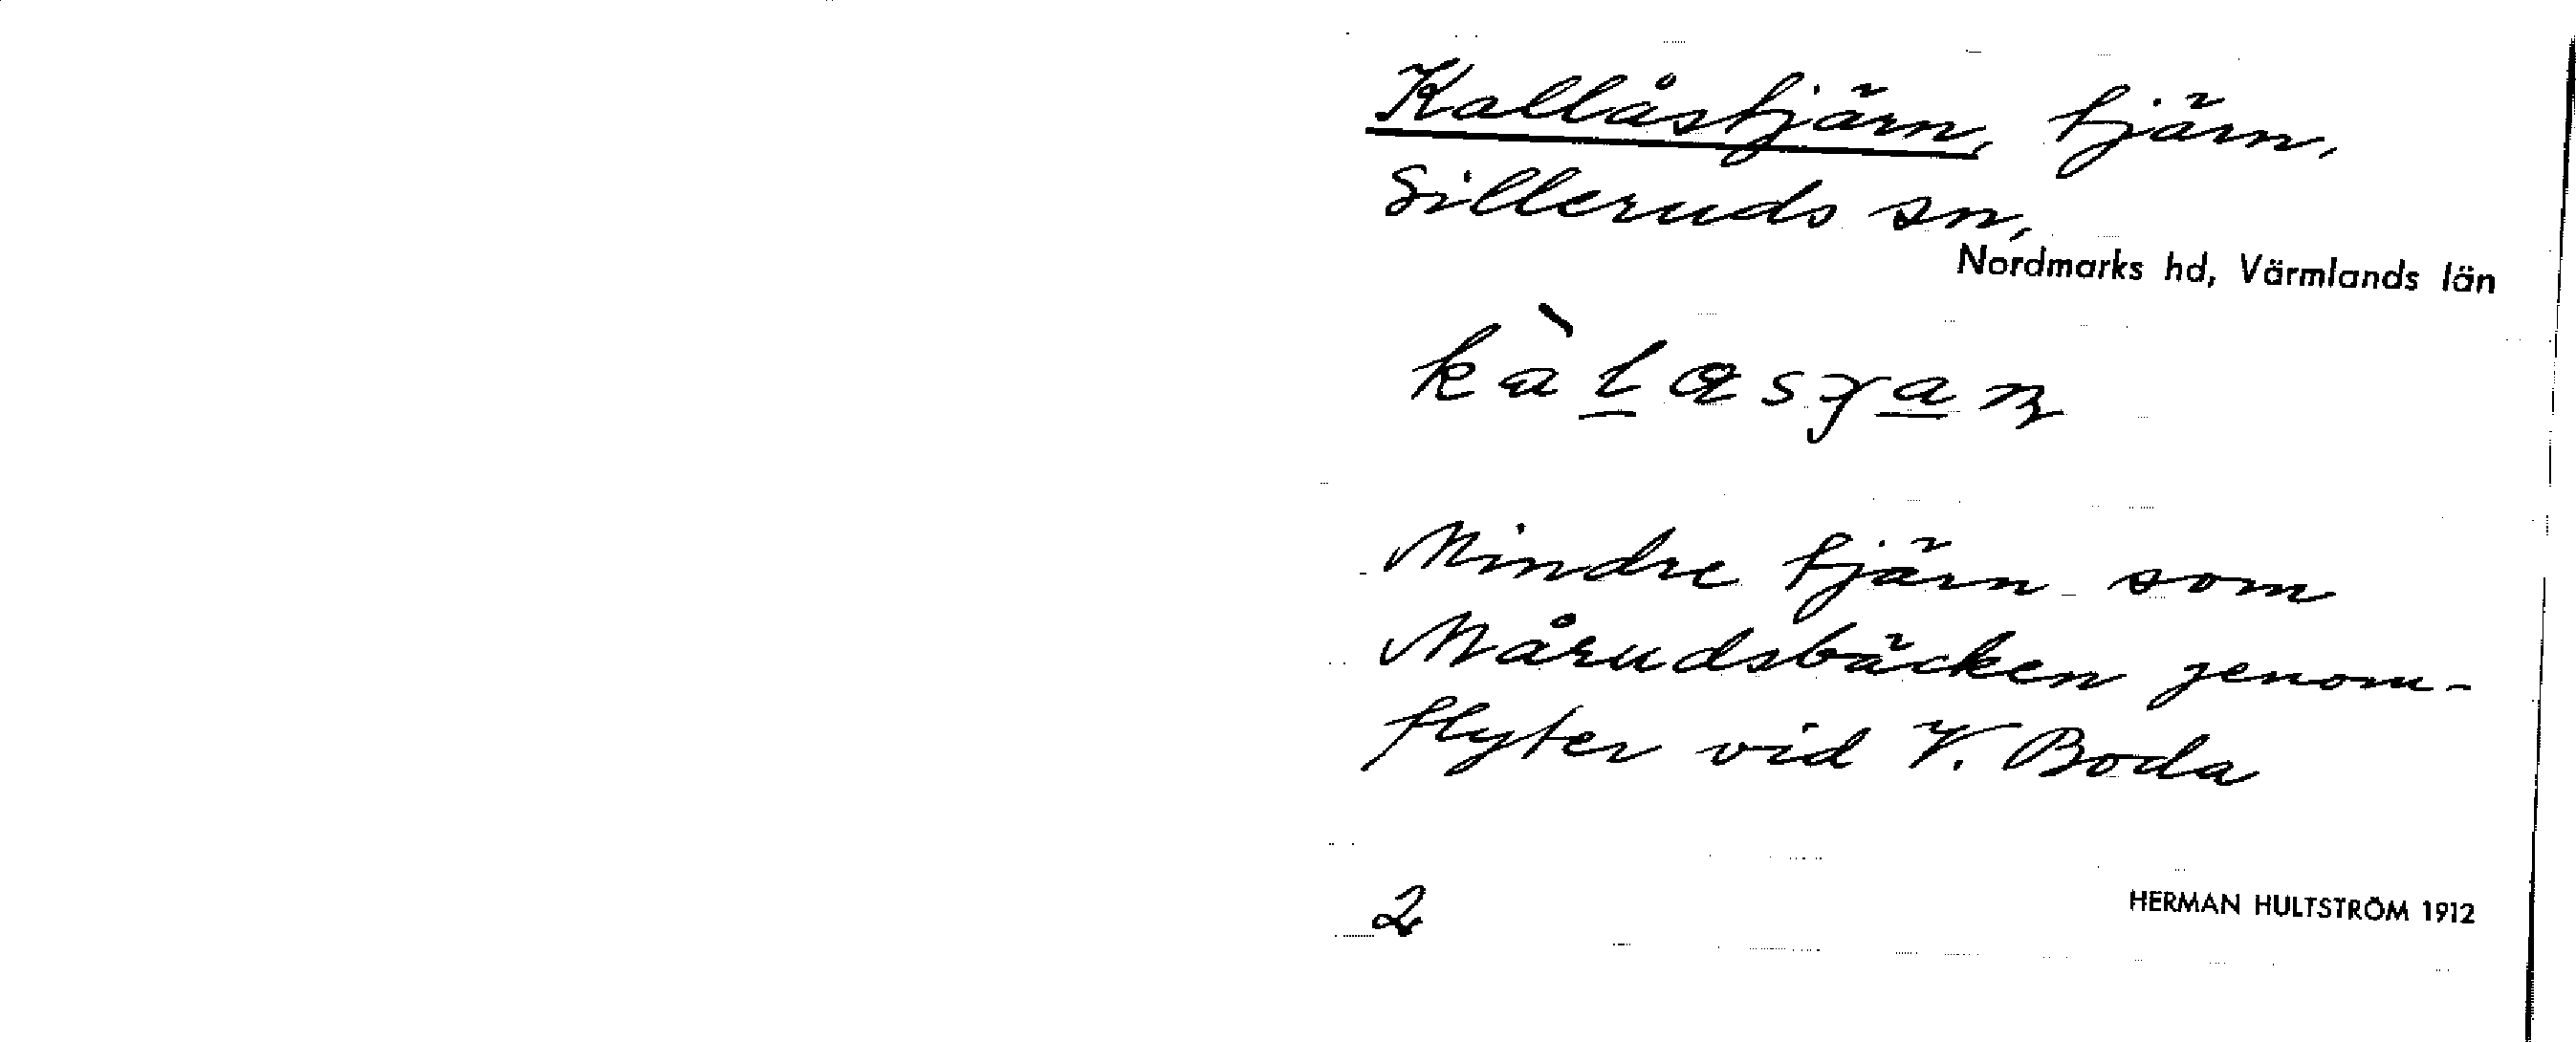 Kallåstjärn, tjärn,
Silleruds sn,
Nordmarks hd, Värmlands län
Mindre tjärn som
Mårudsbäcken genom-
flyter vid V. Boda
2
HERMAN HULTSTRÖM 1912